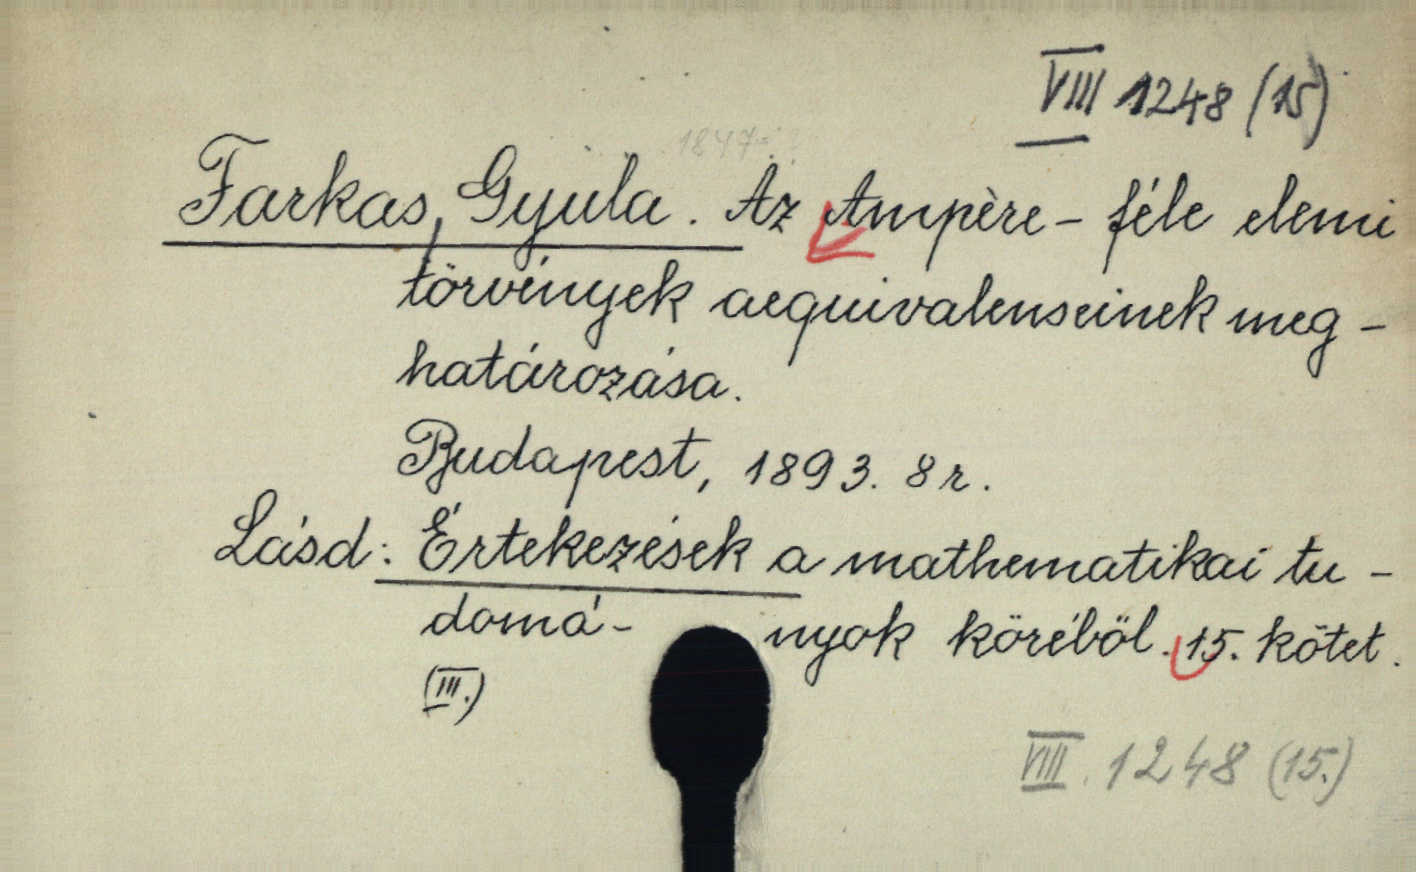 VIII 1248 (15)
1847-?
Farkas, Gyula. Az Ampère-féle elemi
törvények aequivalenseinek meg-
határozása.
Budapest, 1893. 8r.
Lásd: Értekezések a mathematikai tu-
domá- nyok köréből. 15. kötet.
(III.)
VIII. 1248 (15.)